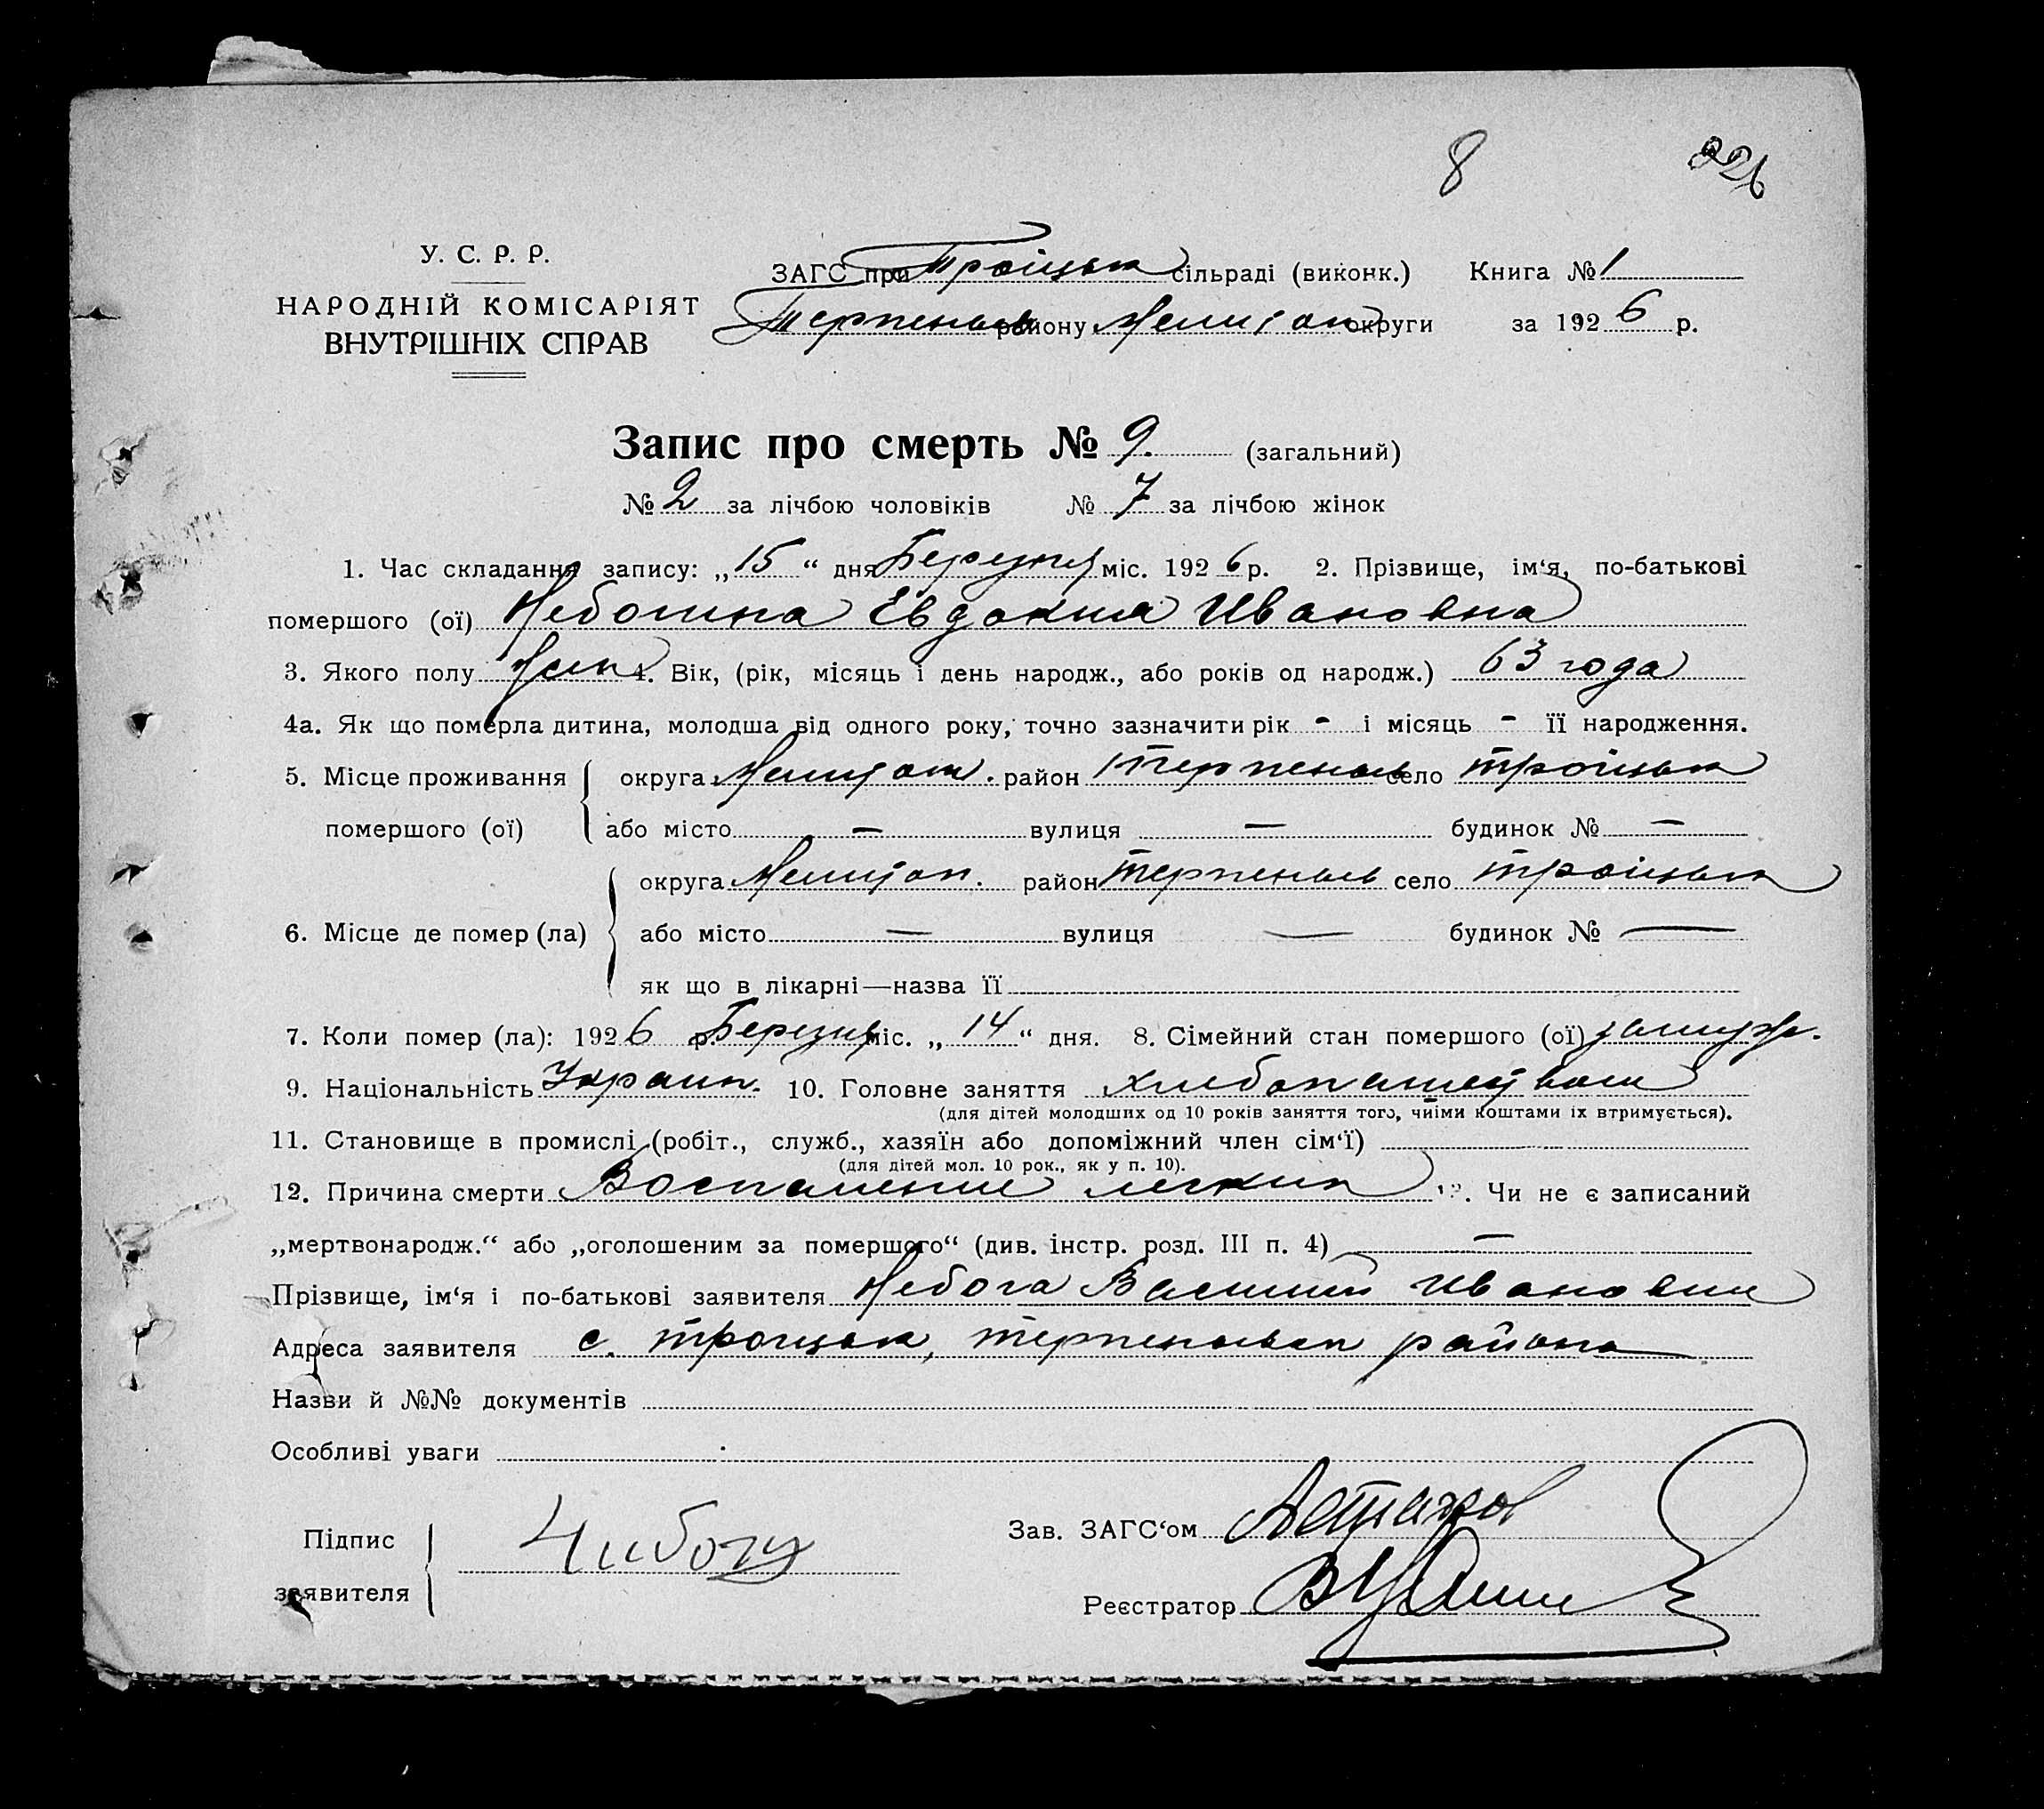 8 226
У. С. Р. Р.
НАРОДНІЙ КОМІСАРІЯТ
ВНУТРІШНІХ СПРАВ
ЗАГС при Троіцьк сільраді (виконк.) Книга № 1
Терпеньев району Мелитоп округи за 1926 р.
Запис про смерть № 9. (загальний)
№ 2 за лічбою чоловіків № 7 за лічбою жінок
1. Час складання запису: „15“ дня Березня міс. 1926 р. 2. Прізвище, ім‘я, по-батькові
помершого (ої) Небогина Евдокия Ивановна
3. Якого полу Жен 4. Вік, (рік, місяць і день народж., або років од народж.) 63 года
4а. Як що померла дитина, молодша від одного року, точно зазначити рік - і місяць - її народження.
5. Місце проживання округа Мелитоп. район Терпеньев село Троицьк
помершого (ої) або місто — вулиця — будинок № —
округа Мелитоп. район Терпеньев село Троіцьк
6. Місце де помер (ла) або місто — вулиця — будинок № —
як що в лікарні—назва її
7. Коли помер (ла): 1926 р. Березня міс. „14“ дня. 8. Сімейний стан помершого (ої) замуж.
9. Національність Украин. 10. Головне заняття хлебопашество
(для дітей молодших од 10 років заняття того, чиїми коштами їх втримується).
11. Становище в промислі (робіт., служб., хазяїн або допоміжний член сім‘ї)
(для дітей мол. 10 рок., як у п. 10).
12. Причина смерти Воспаление легких 13. Чи не є записаний
„мертвонародж.“ або „оголошеним за померщого“ (див. інстр. розд. III п. 4) —
Прізвище, ім‘я і по-батькові заявителя Небога Василий Иванович
Адреса заявителя с. Троицьк, Терпеньевск района
Назви й №№ документів
Особливі уваги
Підпис
заявителя
Зав. ЗАГС‘ом Астахов
Реєстратор